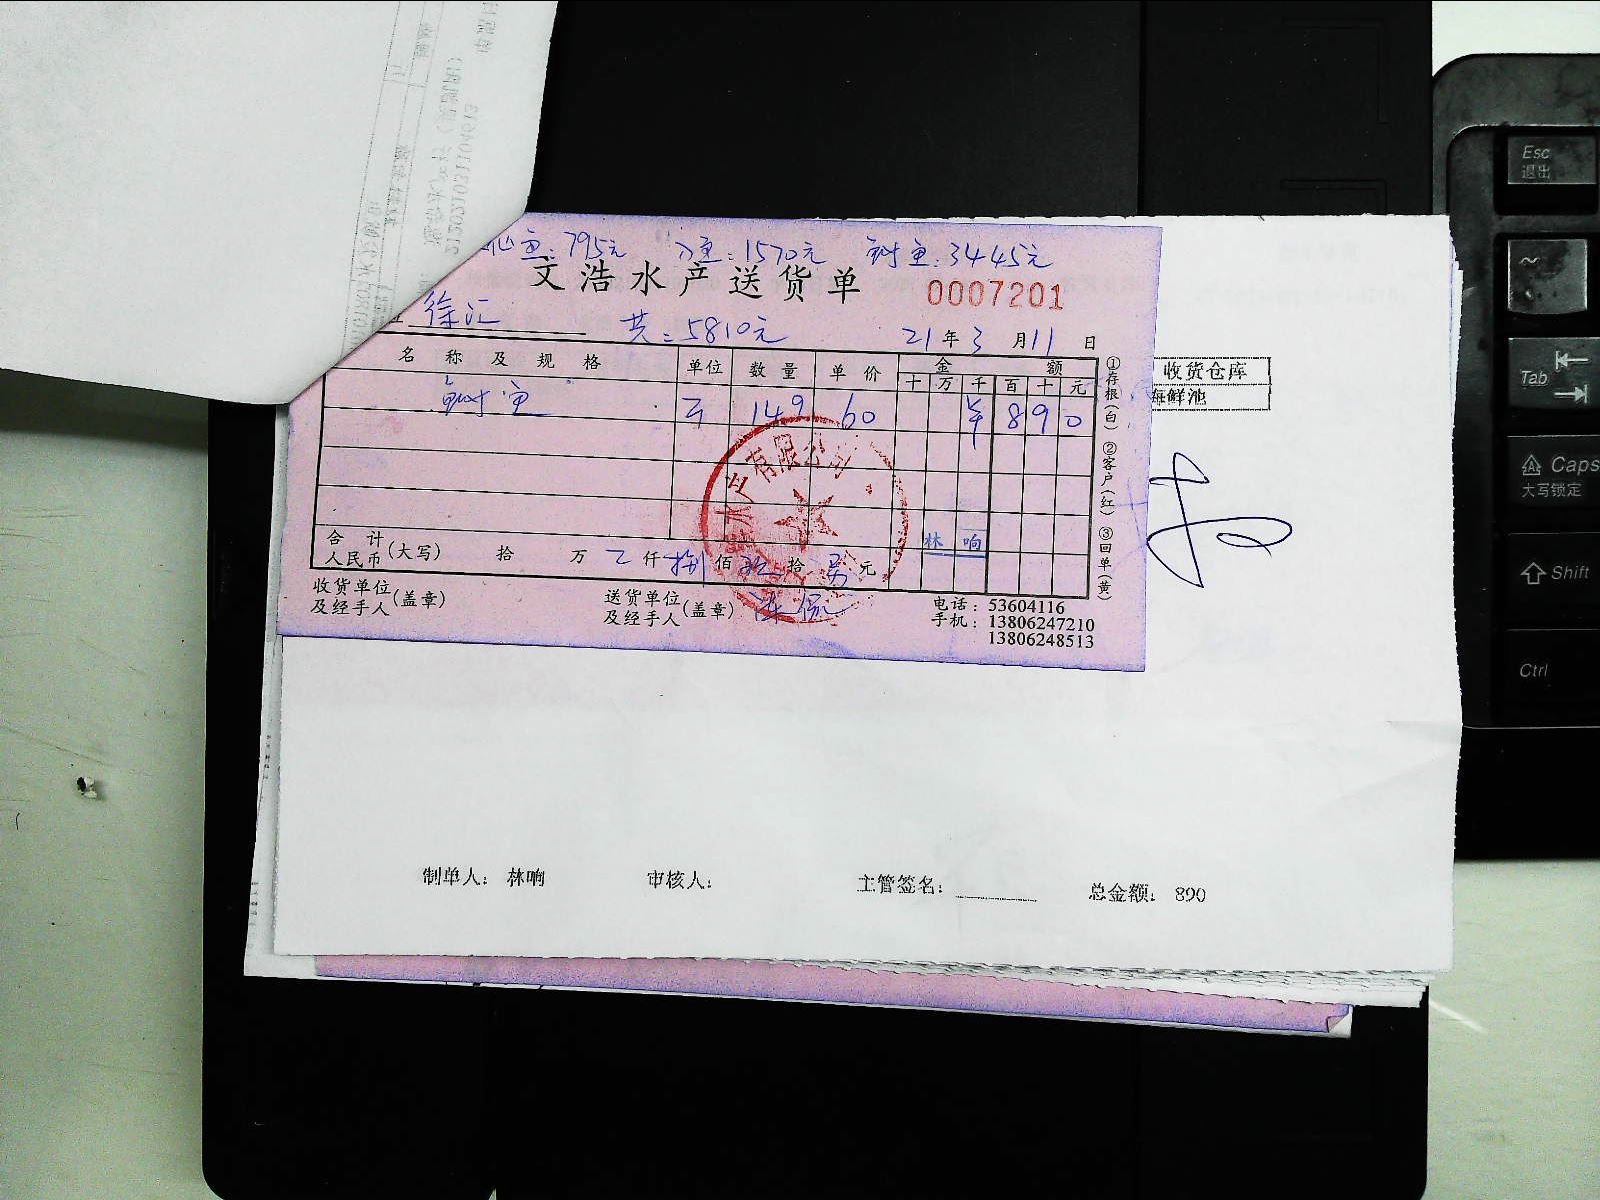 鱼:795元 刀鱼:1570元 鲥鱼:3445元
文浩水产送货单 0007201
徐汇 共:5810元 21年3月11日
名称及规格 单位 数量 单价 金额
十 万 千 百 十 元
鲥鱼 149 60 ¥ 8 9 0
①存根(白) ②客户(红) ③回单(黄)
水产有限公司
林响
合计
人民币(大写) 拾 万 仟 捌佰 玖拾 元
收货单位及经手人(盖章)
送货单位及经手人(盖章)
电话:53604116
手机:13806247210
13806248513
收货仓库
海鲜池
制单人: 林响 审核人: 主管签名: 总金额: 890
Esc
退出
~
Tab
Caps
大写锁定
Shift
Ctrl